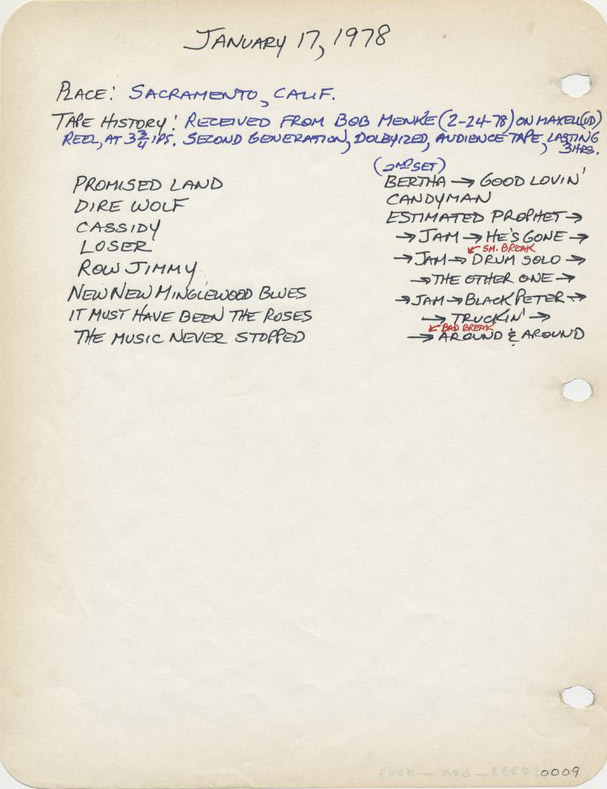 JANUARY 17, 1978
PLACE: SACRAMENTO, CALIF.
TAPE HISTORY: RECEIVED FROM BOB MENKE (2-24-78) ON MAXELL (UD)
REEL, AT 3 3/4 IPS. SECOND GENERATION, DOLBYIZED, AUDIENCE TAPE, LASTING
3HRS.
PROMISED LAND
DIRE WOLF
CASSIDY
LOSER
ROW JIMMY
NEW NEW MINGLEWOOD BLUES
IT MUST HAVE BEEN THE ROSES
THE MUSIC NEVER STOPPED
(2ND SET)
BERTHA → GOOD LOVIN'
CANDYMAN
ESTIMATED PROPHET →
→ JAM → HE'S GONE →
↙ SM. BREAK
→ JAM → DRUM SOLO →
→ THE OTHER ONE →
→ JAM → BLACK PETER →
→ TRUCKIN' →
↙ BAD BREAK
→ AROUND & AROUND
0009